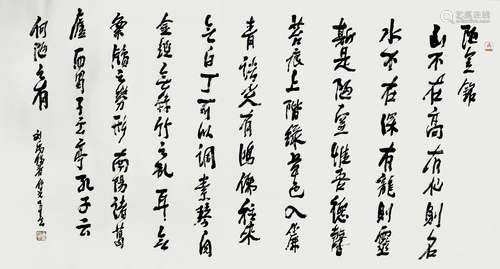 陋室銘
山不在高有仙則名
水不在深有龍則靈
斯是陋室惟吾德馨
苔痕上階綠草色入簾
青談笑有鴻儒往來
無白丁可以調素琴閱
金經無絲竹之亂耳無
案牘之勞形南陽諸葛
廬西蜀子雲亭孔子云
何陋之有